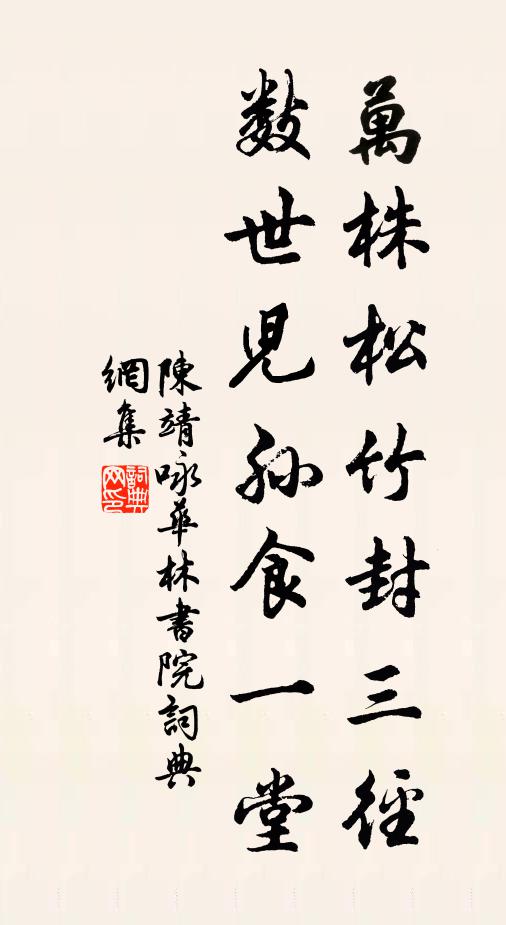 萬株松竹封三徑
數世兒孫食一堂
陳靖咏華林書院詞典
網集
詞典網印